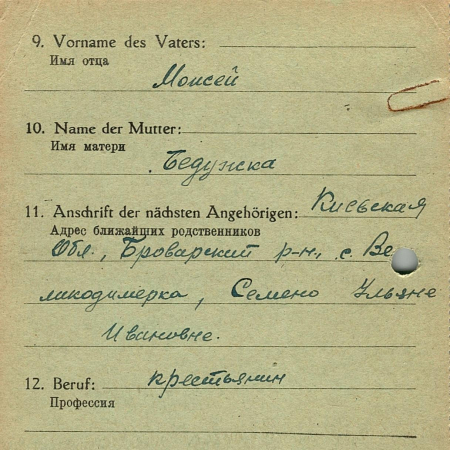 9. Vorname des Vaters:
Имя отца
Моисей
10. Name der Mutter:
Имя матери
Бедужска
11. Anschrift der nächsten Angehörigen: Киевская
Адрес ближайших родственников
Обл., Броварский р-н, с. Ве
ликодимерка, Семено Ульяне
Ивановне.
12. Beruf: крестьянин
Профессия